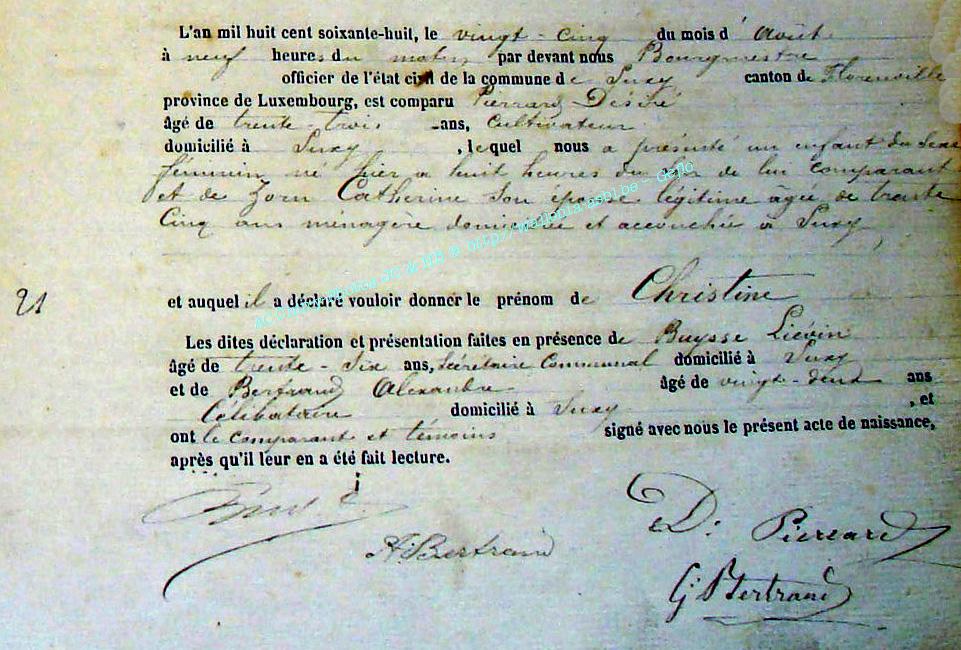 L'an mil huit cent soixante-huit, le vingt-cinq du mois d'Août
à neuf heures du matin par devant nous Bourgmestre
officier de l'état civil de la commune de Suxy canton de Florenville
province de Luxembourg, est comparu Pierrard Désiré
âgé de trente-trois ans, Cultivateur
domicilié à Suxy, lequel nous a présenté un enfant du sexe
féminin né hier a huit heures du soir de lui comparant
et de Zorn Catherine son épouse légitime âgée de trente
Cinq ans ménagère domiciliée et accouchée à Suxy,
21
et auquel il a déclaré vouloir donner le prénom de Christine
Les dites déclaration et présentation faites en présence de Buysse Liévin
âgé de trente-six ans, Secrétaire Communal domicilié à Suxy
et de Bertrand Alexandre âgé de vingt-deux ans
Célibataire domicilié à Suxy, et
ont le comparant et témoins signé avec nous le présent acte de naissance,
après qu'il leur en a été fait lecture.
D. Pierrard
A. Bertrand
G. Bertrand
http://wallonia.asbl.be - Geho